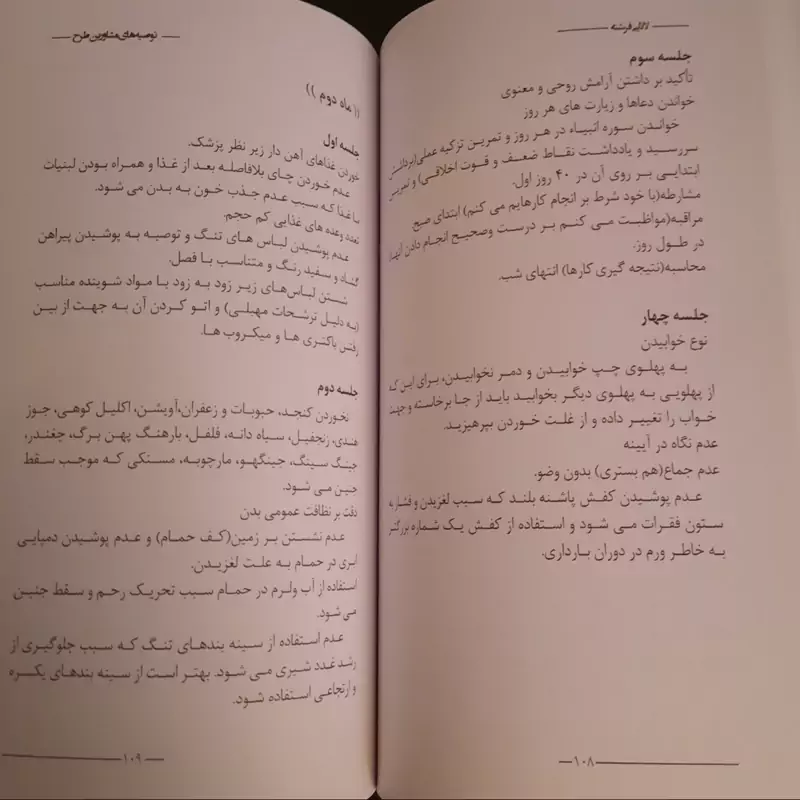 لالایی فرشته
جلسه سوم
تأکید بر داشتن آرامش روحی و معنوی
خواندن دعاها و زیارت های هر روز
خواندن سوره انبیاء در هر روز و تمرین تزکیه عملی(برداشتن
سررسید و یادداشت نقاط ضعف و قوت اخلاقی) و تمرین
ابتدایی بر روی آن در ۴۰ روز اول.
مشارطه(با خود شرط بر انجام کارهایم می کنم) ابتدای صبح
مراقبه(مواظبت می کنم بر درست وصحیح انجام دادن آنها)
در طول روز.
محاسبه(نتیجه گیری کارها) انتهای شب.
جلسه چهار
نوع خوابیدن
به پهلوی چپ خوابیدن و دمر نخوابیدن، برای این که
از پهلویی به پهلوی دیگر بخوابید باید از جا برخاسته و جهت
خواب را تغییر داده و از غلت خوردن بپرهیزید.
عدم نگاه در آیینه
عدم جماع(هم بستری) بدون وضو.
عدم پوشیدن کفش پاشنه بلند که سبب لغزیدن و فشار به
ستون فقرات می شود و استفاده از کفش یک شماره بزرگتر
به خاطر ورم در دوران بارداری.
۱۰۸
توصیه های مشاورین طرح
(( ماه دوم ))
جلسه اول
خوردن غذاهای آهن دار زیر نظر پزشک.
عدم خوردن چای بلافاصله بعد از غذا و همراه بودن لبنیات
با غذا که سبب عدم جذب خون به بدن می شود.
تعدد وعده های غذایی کم حجم.
عدم پوشیدن لباس های تنگ و توصیه به پوشیدن پیراهن
گشاد و سفید رنگ و متناسب با فصل.
شستن لباس‌های زیر زود به زود با مواد شوینده مناسب
(به دلیل ترشحات مهبلی) و اتو کردن آن به جهت از بین
رفتن باکتری ها و میکروب ها.
جلسه دوم
نخوردن کنجد، حبوبات و زعفران،آویشن، اکلیل کوهی، جوز
هندی، زنجفیل، سیاه دانه، فلفل، بارهنگ پهن برگ، چغندر،
جینگ سینگ، جینگهو، مارچوبه، مستکی که موجب سقط
جنین می شود.
دقت بر نظافت عمومی بدن
عدم نشستن بر زمین(کف حمام) و عدم پوشیدن دمپایی
ابری در حمام به علت لغزیدن.
استفاده از آب ولرم در حمام سبب تحریک رحم و سقط جنین
می شود.
عدم استفاده از سینه بندهای تنگ که سبب جلوگیری از
رشد غدد شیری می شود. بهتر است از سینه بندهای یکسره
و ارتجاعی استفاده شود.
۱۰۹